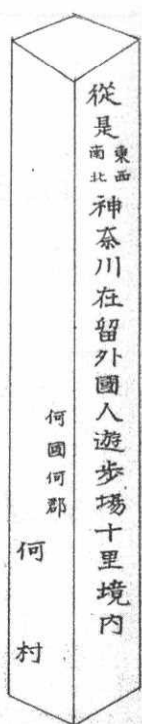 從是東西南北神奈川在留外國人遊歩場十里境内
何國何郡
何村